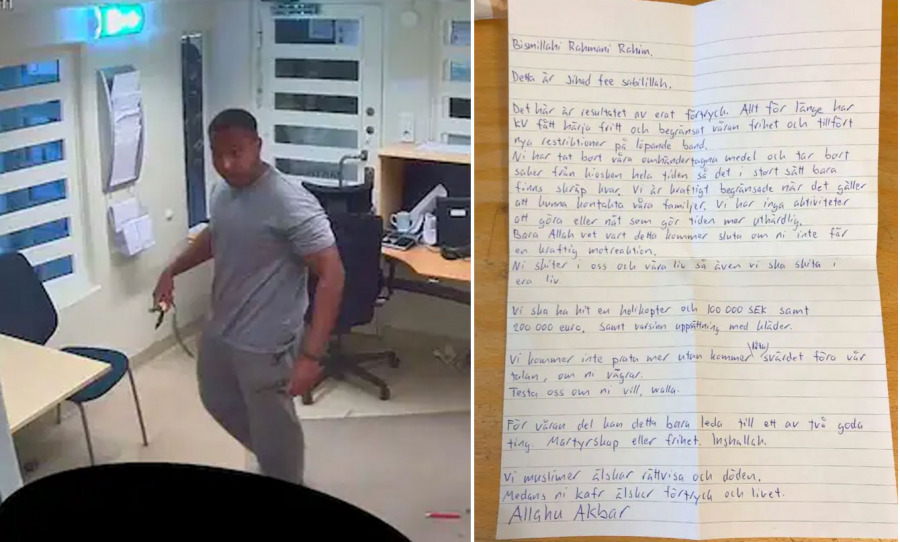 Bismillahi Rahmani Rahim.
Detta är Jihad fee sabilillah.
Det här är resultatet av erat förtryck. Allt för länge har
KV fått härja fritt och begränsat våran frihet och tillfört
nya restriktioner på löpande band.
Ni har tat bort våra omhändertagna medel och tar bort
saker från kiosken hela tiden så det i stort sätt bara
finns skräp kvar. Vi är kraftigt begränsade när det gäller
att kunna kontakta våra familjer. Vi har inga aktiviteter
att göra eller nåt som gör tiden mer uthärdlig.
Bara Allah vet vart detta kommer sluta om ni inte får
en kraftig motreaktion.
Ni skiter i oss och våra liv så även vi ska skita i
era liv.
Vi ska ha hit en helikopter och 100 000 SEK samt
200 000 euro. Samt varsian uppsättning med kläder.
Vi kommer inte prata mer utan kommer låta svärdet föra vår
talan, om ni vägrar.
Testa oss om ni vill, walla.
För våran del kan detta bara leda till ett av två goda
ting. Martyrskap eller frihet. Inshallah.
Vi muslimer älskar rättvisa och döden.
Medans ni kafr älskar förtryck och livet.
Allahu Akbar